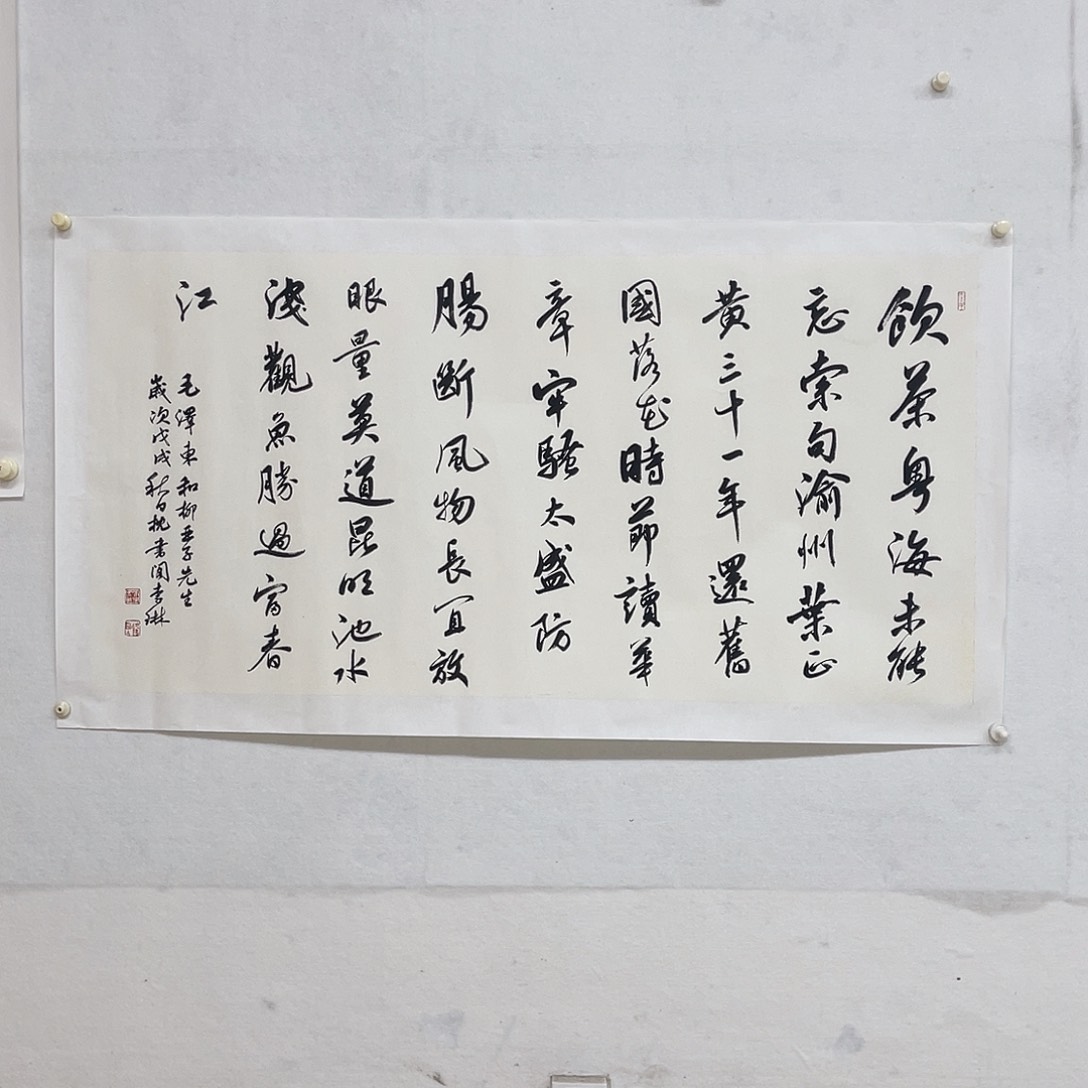 飲茶粤海未能
忘索句渝州葉正
黃三十一年還舊
國落花時節讀華
章牢騷太盛防
腸斷風物長宜放
眼量莫道昆明池水
淺觀魚勝過富春
江
毛澤東和柳亞子先生
歲次戊戌秋日桃書